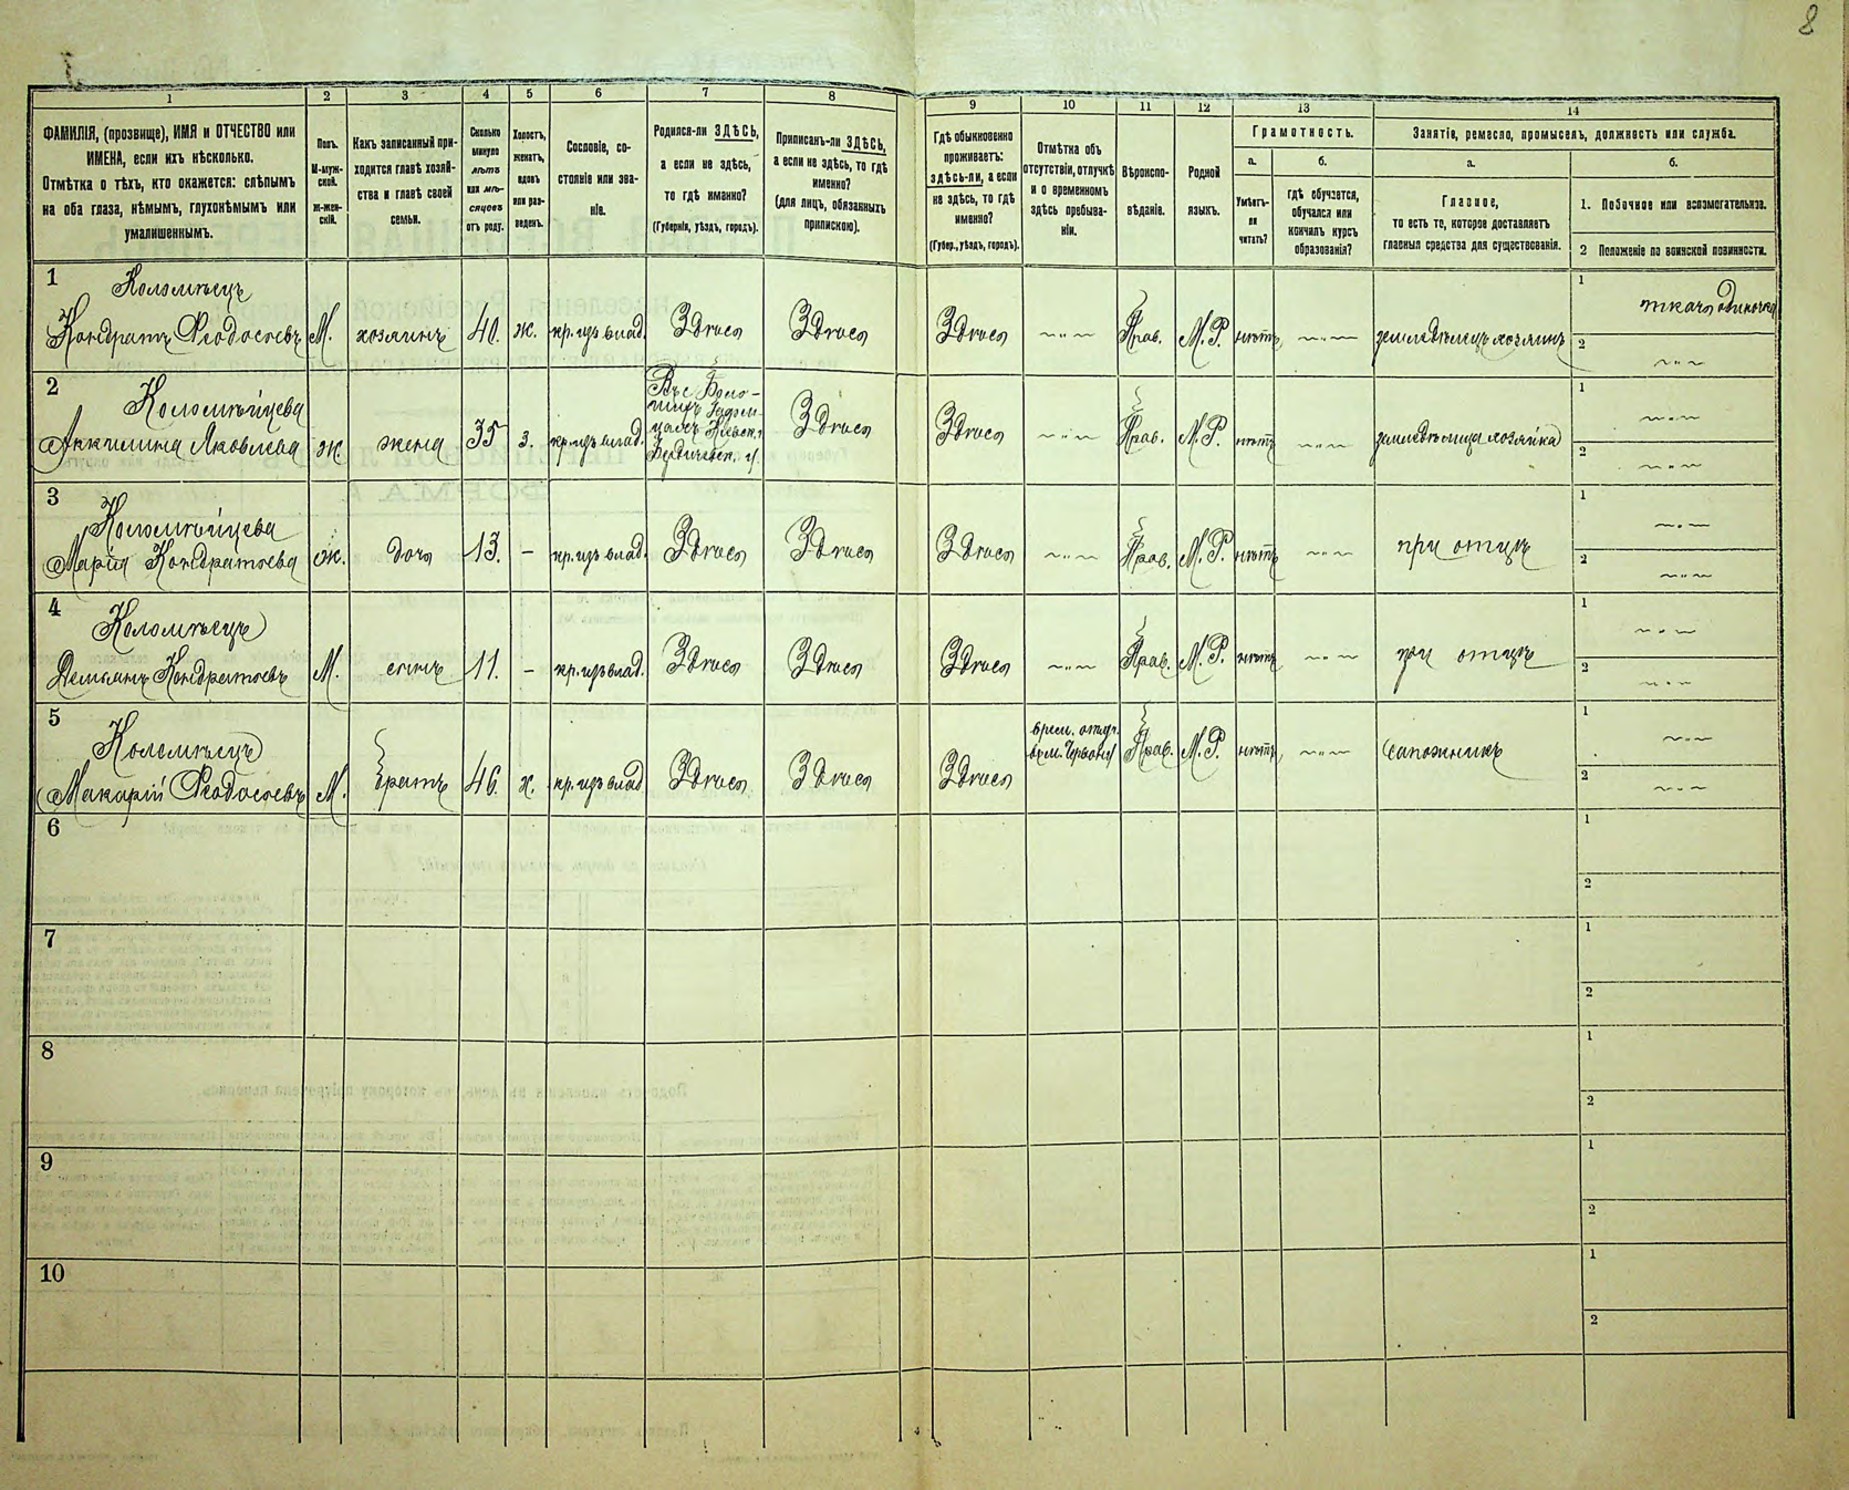 8
1
ФАМИЛІЯ, (прозвище), ИМЯ и ОТЧЕСТВО или
ИМЕНА, если ихъ нѣсколько.
Отмѣтка о тѣхъ, кто окажется: слѣпымъ
на оба глаза, нѣмымъ, глухонѣмымъ или
умалишеннымъ.
2
Полъ.
М-муж-
ской.
ж-жен-
скій.
3
Какъ записанный при-
ходится главѣ хозяй-
ства и главѣ своей
семьи.
4
Сколько
минуло
лѣтъ
или мѣ-
сяцевъ
отъ роду.
5
Холостъ,
женатъ,
вдовъ
или раз-
веденъ.
6
Сословіе, со-
стояніе или зва-
ніе.
7
Родился-ли ЗДѢСЬ,
а если не здѣсь,
то гдѣ именно?
(Губернія, уѣздъ, городъ).
8
Приписанъ-ли ЗДѢСЬ,
а если не здѣсь, то гдѣ
именно?
(для лицъ, обязанныхъ
припискою).
9
Гдѣ обыкновенно
проживаетъ:
здѣсь-ли, а если
не здѣсь, то гдѣ
именно?
(Губер., уѣздъ, городъ).
10
Отмѣтка объ
отсутствіи, отлучкѣ
и о временномъ
здѣсь пребыва-
ніи.
11
Вѣроиспо-
вѣданіе.
12
Родной
языкъ.
13
Грамотность.
а.
Умѣетъ-
ли
читать?
б.
гдѣ обучается,
обучался или
кончилъ курсъ
образованія?
14
Занятіе, ремесло, промыселъ, должность или служба.
а.
Главное,
то есть то, которое доставляетъ
главныя средства для существованія.
б.
1. Побочное или вспомогательное.
2 Положеніе по воинской повинности.
1
Коломѣецъ
Кондратъ Феодосіевъ
М.
хозяинъ
40.
ж.
кр. изъ влад.
Здѣсь
Здѣсь
Здѣсь
Прав.
М.Р.
нѣтъ
земледѣлецъ хозяинъ
1
ткачъ одиночка
2
2
Коломѣйцева
Аккилина Яковлева
ж.
жена
35
з.
кр. изъ влад.
Бердичевск. у.
Здѣсь
Здѣсь
Прав.
М.Р.
нѣтъ
земледѣлица хозяйка
1
2
3
Коломѣйцева
Марія Кондратьева
ж.
дочь
13.
–
кр. изъ влад.
Здѣсь
Здѣсь
Здѣсь
Прав.
М.Р.
нѣтъ
при отцѣ
1
2
4
Коломѣецъ
Демьянъ Кондратьевъ
М.
сынъ
11.
–
кр. изъ влад.
Здѣсь
Здѣсь
Здѣсь
Прав.
М.Р.
нѣтъ
при отцѣ
1
2
5
Коломѣецъ
Макарій Феодосіевъ
М.
братъ
46.
х.
кр. изъ влад
Здѣсь
Здѣсь
Здѣсь
Прав.
М.Р.
нѣтъ
сапожникъ
1
2
6
1
2
7
1
2
8
1
2
9
1
2
10
1
2